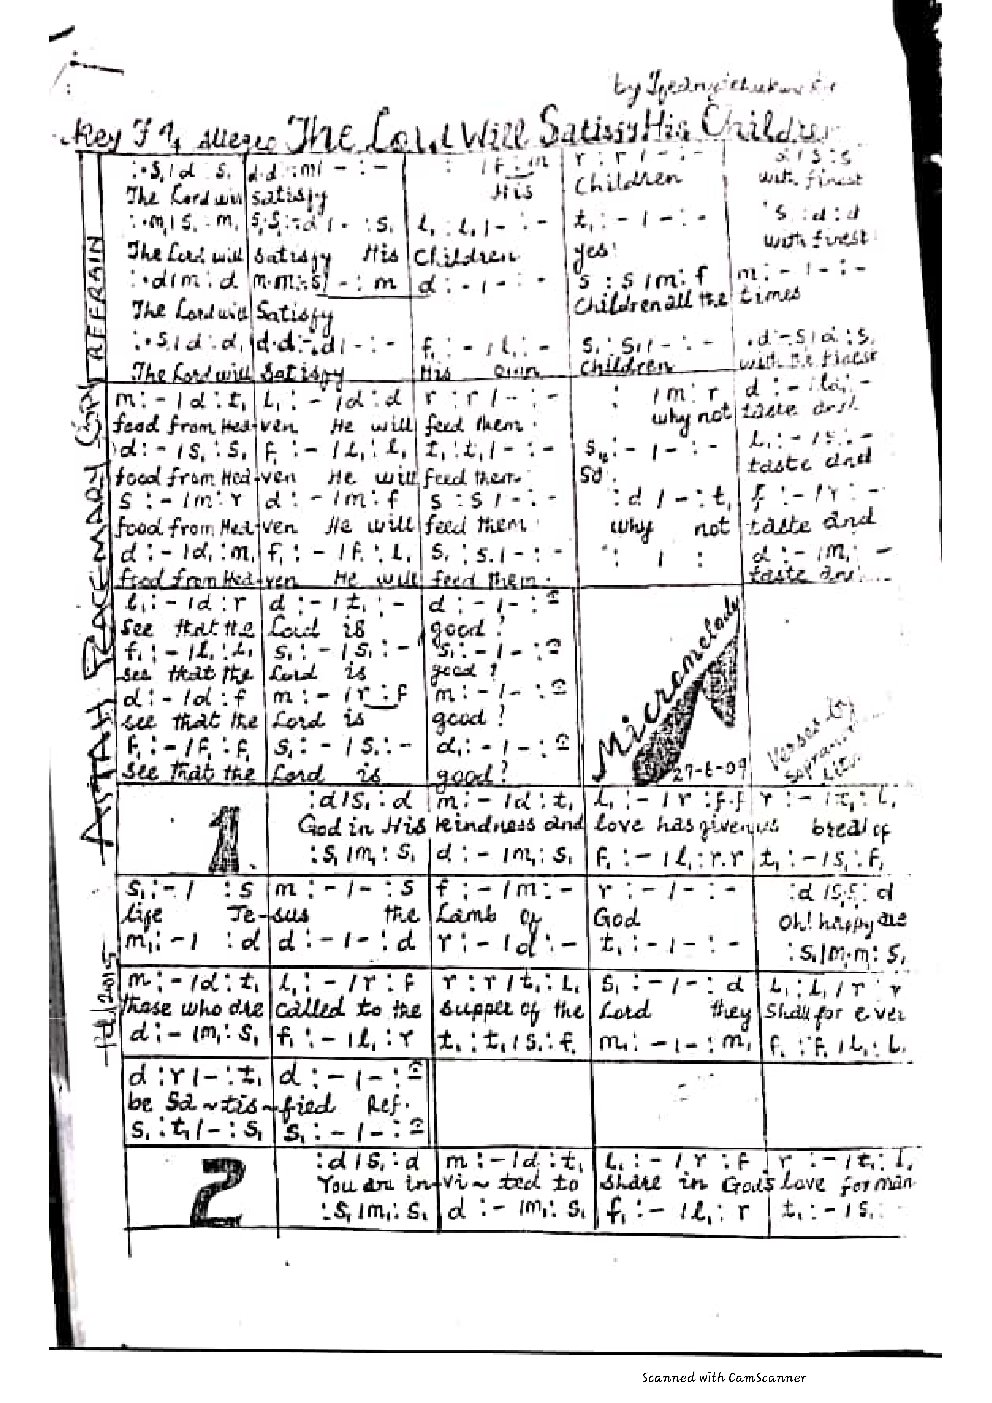 by
Key F 4 Allegro The Lord Will Satisfy His Children
REFRAIN
:·s,/d :s, d·d :m/- :- : /f :m r :r/- :- s/s :s
The Lord will Satisfy His Children with finest
:·m,/s, :m, s,·s, :-d/- :s, l, :l,/- :- t, :-/- :- s :d :d
The Lord will Satisfy His Children yes! with finest
:·d/m :d m·m :s/- :m d :-/- :- s :s/m :f m :-/- :-
The Lord will Satisfy Children all the times
:·s,/d :d, d·d :-d/- :- f, :-/l, :- s, :s,/- :- ·d :-s/d :s,
The Lord will Satisfy His own Children with the finest
m :-/d :t, l, :-/d :d r :r/- :- : /m :r d :-/la, :-
food from Hea-ven He will feed them. why not taste and
d :-/s, :s, f, :-/l, :l, t, :t,/- :- s, :-/- :- l, :-/s, :-
food from Hea-ven He will feed them. So. taste and
s :-/m :r d :-/m :f s :s/- :- :d/- :t, f :-/r :-
food from Hea-ven He will feed them. why not taste and
d :-/d, :m, f, :-/f, :l, s, :s,/- :- : / : d :-/m, :-
food from Hea-ven He will feed them. taste and
l, :-/d :r d :-/t, :- d :-/- :-
See that the Lord is good?
f, :-/l, :l, s, :-/s, :- s, :-/- :-
see that the Lord is good?
d :-/d :f m :-/r :f m :-/- :-
see that the Lord is good?
f, :-/f, :f, s, :-/s, :- d, :-/- :-
See that the Lord is good?
Micromelody
27-6-09
Verses by
1.
:d/s, :d m :-/d :t, l, :-/r :f·f r :-/t, :l,
God in His kindness and love has given us bread of
:s,/m, :s, d :-/m, :s, f, :-/l, :r·r t, :-/s, :f,
s, :-/ :s m :-/- :s f :-/m :- r :-/- :- :d/s,·s, :d
life Je-sus the Lamb of God Oh! happy are
m, :-/ :d d :-/- :d r :-/d :- t, :-/- :- :s,/m·m :s,
m :-/d :t, l, :-/r :f r :r/t, :l, s, :-/- :d l, :l,/r :r
those who are called to the supper of the Lord they Shall for ever
d :-/m, :s, f, :-/l, :r t, :t,/s, :f, m, :-/- :m, f, :f,/l, :l,
d :r/- :t, d :-/- :-
be Sa~tis~fied Ref.
s, :t,/- :s, s, :-/- :-
2
:d/s, :d m :-/d :t, l, :-/r :f r :-/t, :l,
You are in-vi~ted to share in God's love for man
:s,/m, :s, d :-/m, :s, f, :-/l, :r t, :-/s, :-
Scanned with CamScanner